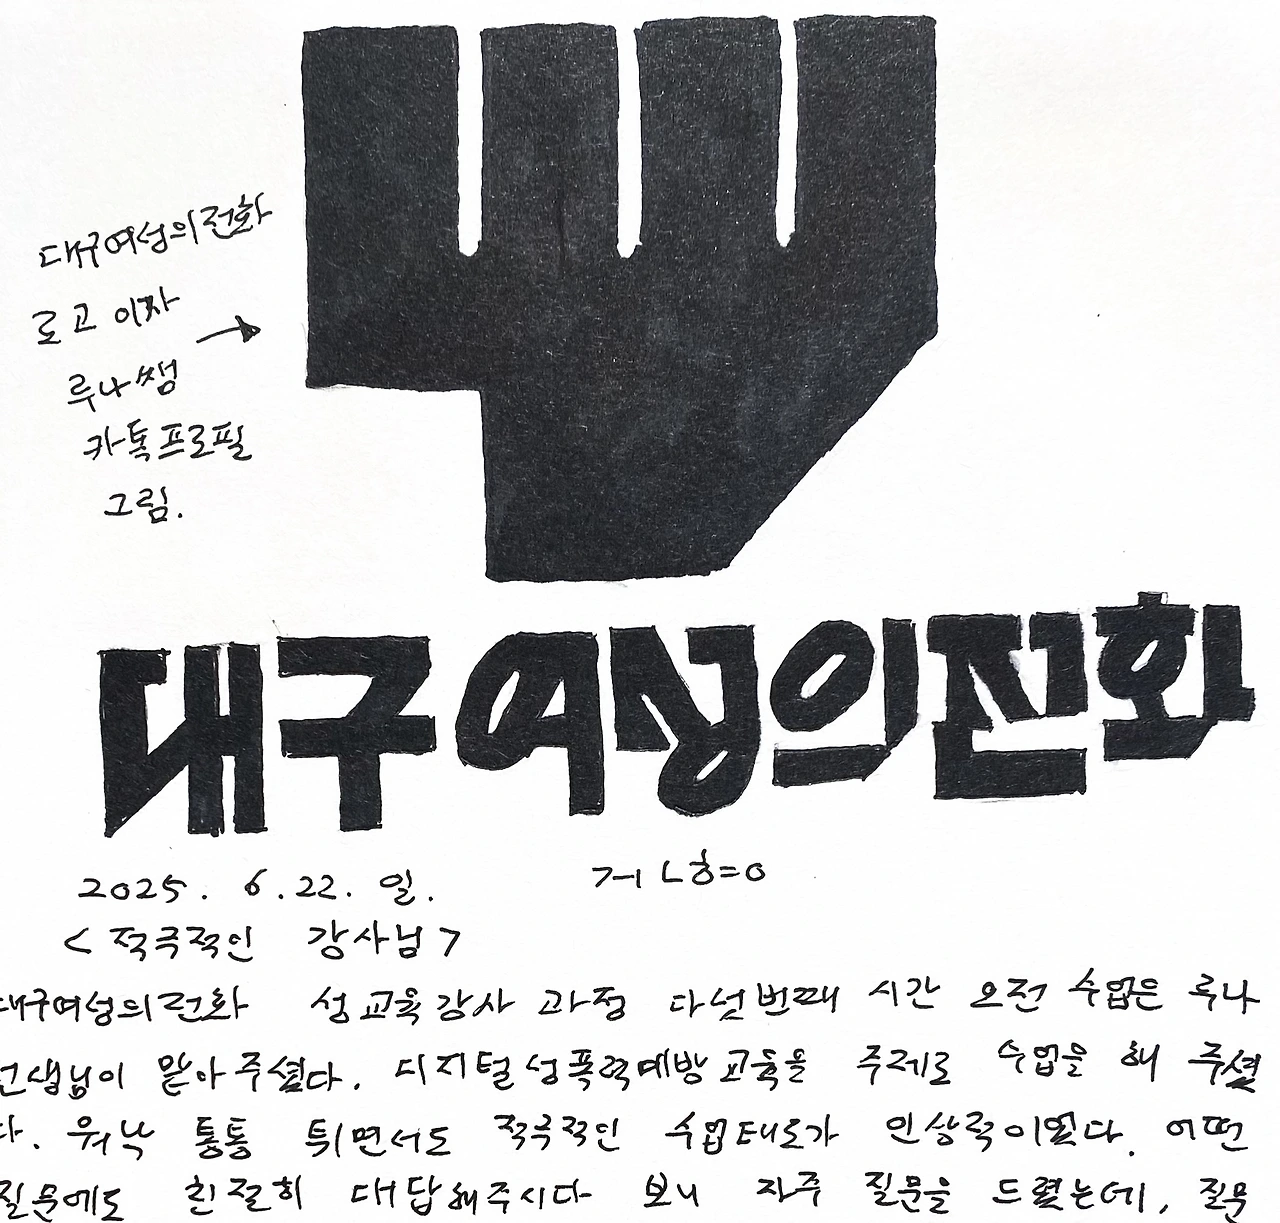 대구여성의전화
로고 이자
루나쌤
카톡프로필
그림.
대구여성의전화
2025. 6.22. 일.
<적극적인 강사님>
대구여성의전화 성교육강사 과정 다섯번째 시간 오전 수업은 루나
선생님이 맡아주셨다. 디지털성폭력예방교육을 주제로 수업을 해 주셨
다. 워낙 통통 튀면서도 적극적인 수업태도가 인상적이었다. 어떤
질문에도 친절히 대답해주시다 보니 자주 질문을 드렸는데, 질문